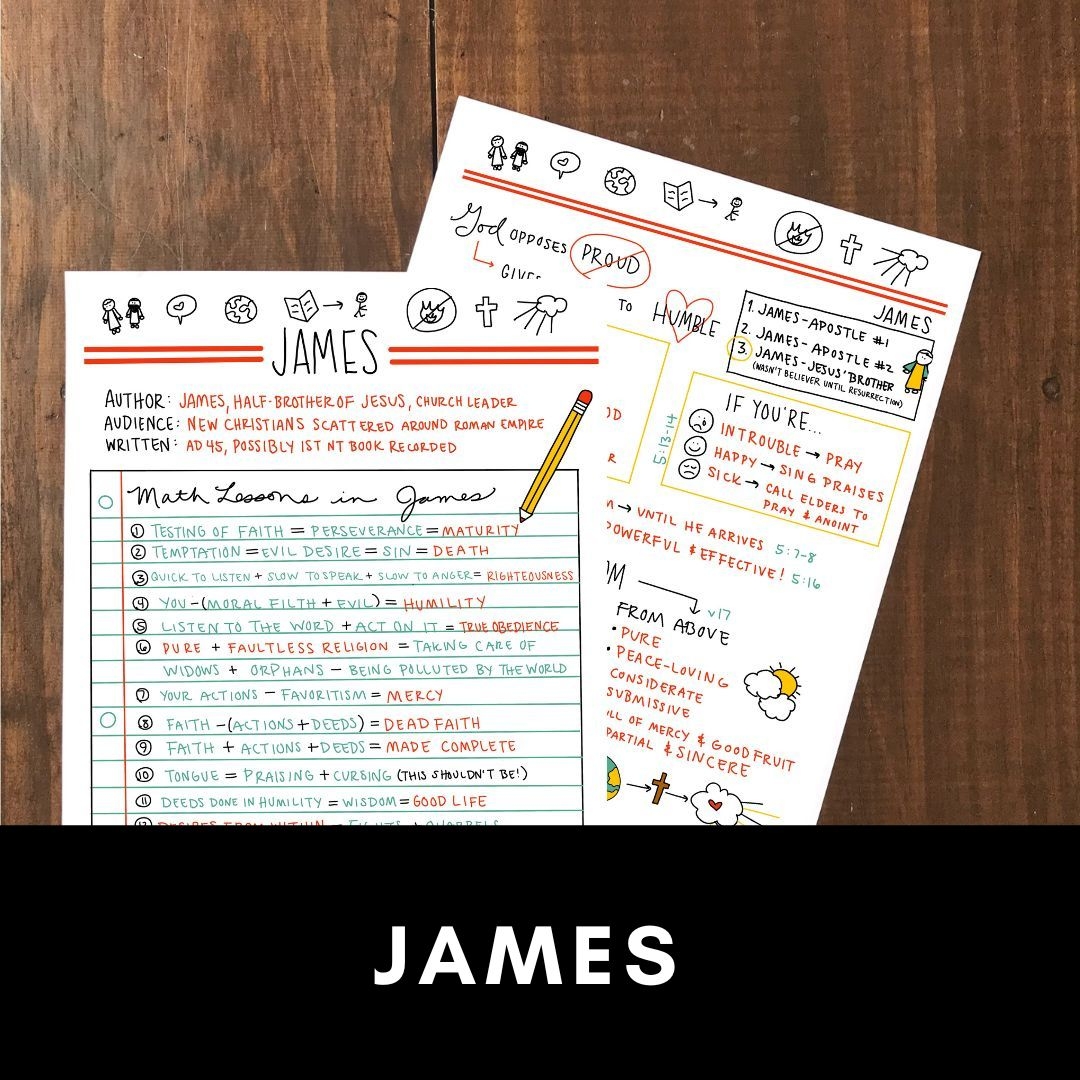 JAMES
AUTHOR: JAMES, HALF-BROTHER OF JESUS, CHURCH LEADER
AUDIENCE: NEW CHRISTIANS SCATTERED AROUND ROMAN EMPIRE
WRITTEN: AD 45, POSSIBLY 1ST NT BOOK RECORDED
Math Lessons in James
① TESTING OF FAITH = PERSEVERANCE = MATURITY
② TEMPTATION = EVIL DESIRE = SIN = DEATH
③ QUICK TO LISTEN + SLOW TO SPEAK + SLOW TO ANGER = RIGHTEOUSNESS
④ YOU - (MORAL FILTH + EVIL) = HUMILITY
⑤ LISTEN TO THE WORD + ACT ON IT = TRUE OBEDIENCE
⑥ PURE + FAULTLESS RELIGION = TAKING CARE OF
WIDOWS + ORPHANS - BEING POLLUTED BY THE WORLD
⑦ YOUR ACTIONS - FAVORITISM = MERCY
⑧ FAITH - (ACTIONS + DEEDS) = DEAD FAITH
⑨ FAITH + ACTIONS + DEEDS = MADE COMPLETE
⑩ TONGUE = PRAISING + CURSING (THIS SHOULDN'T BE!)
⑪ DEEDS DONE IN HUMILITY = WISDOM = GOOD LIFE
⑫ DESIRES FROM WITHIN = FIGHTS + QUARRELS
God OPPOSES PROUD
GIVES
TO HUMBLE
JAMES
1. JAMES - APOSTLE #1
2. JAMES - APOSTLE #2
3. JAMES - JESUS' BROTHER
(WASN'T BELIEVER UNTIL RESURRECTION)
5:13-14
IF YOU'RE...
IN TROUBLE → PRAY
HAPPY → SING PRAISES
SICK → CALL ELDERS TO
PRAY & ANOINT
→ UNTIL HE ARRIVES 5:7-8
POWERFUL & EFFECTIVE! 5:16
v17
FROM ABOVE
• PURE
• PEACE-LOVING
CONSIDERATE
SUBMISSIVE
OF MERCY & GOOD FRUIT
& SINCERE
JAMES